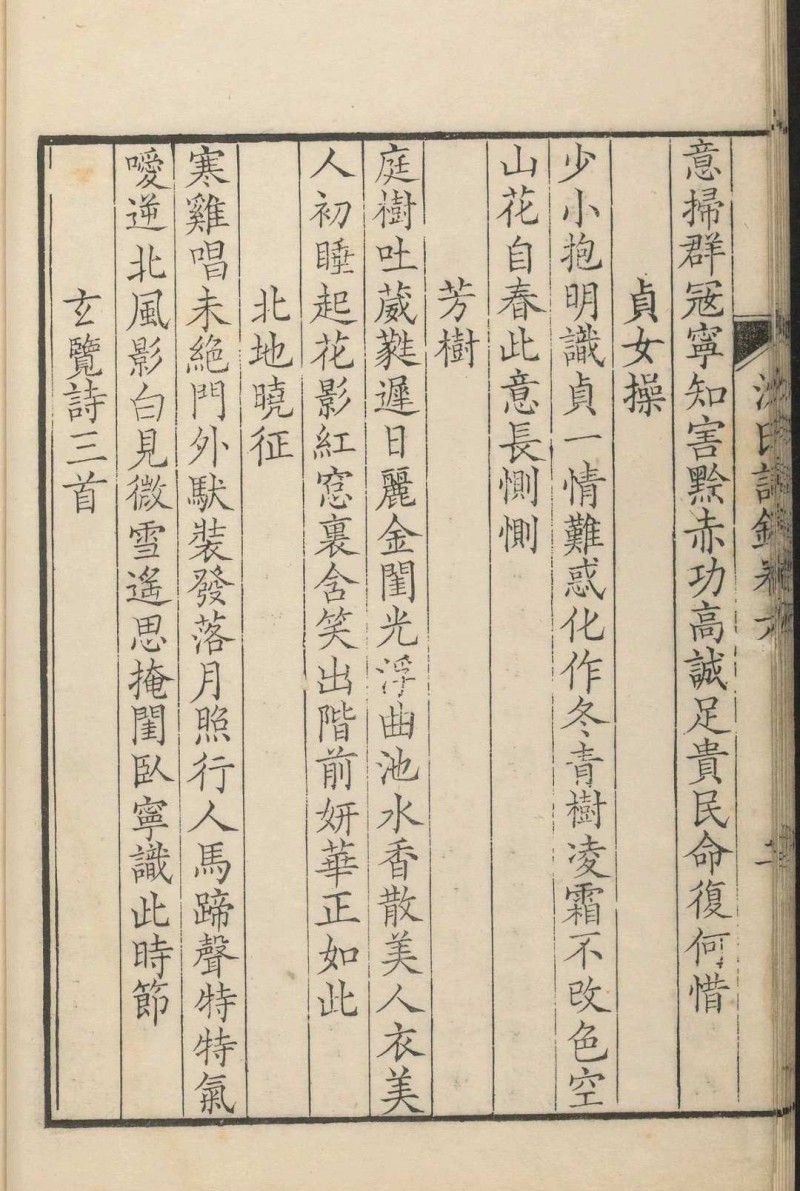 意掃群寇寧知害黥赤功高誠足貴民命復何惜
貞女操
少小抱明識貞一情難惑化作冬青樹凌霜不改色空
山花自春此意長惻惻
芳樹
庭樹吐葳蕤遲日麗金閨光浮曲池水香散美人衣美
人初睡起花影紅窓裏含笑出階前妍華正如此
北地曉征
寒雞唱未絶門外馱裝發落月照行人馬蹄聲特特氣
噯逆北風影白見微雪遙思掩閨臥寧識此時節
玄覽詩三首